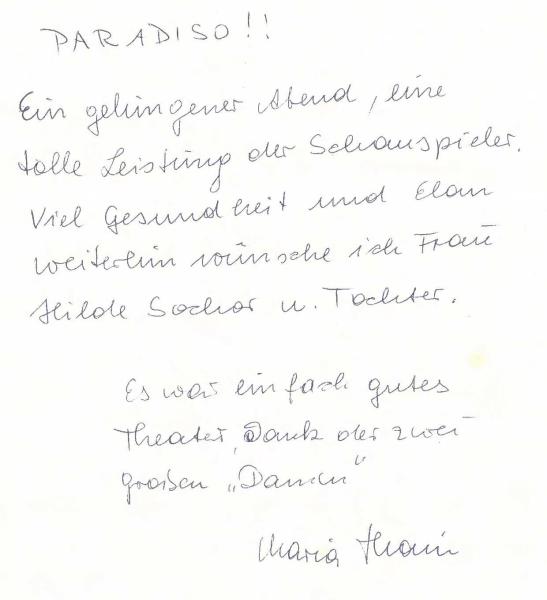 PARADISO!!
Ein gelungener Abend, eine
tolle Leistung der Schauspieler.
Viel Gesundheit und Elan
weiterhin wünsche ich Frau
Hilde Sochor u. Tochter.
Es war einfach gutes
Theater, Dank der zwei
großen „Damen"
Maria